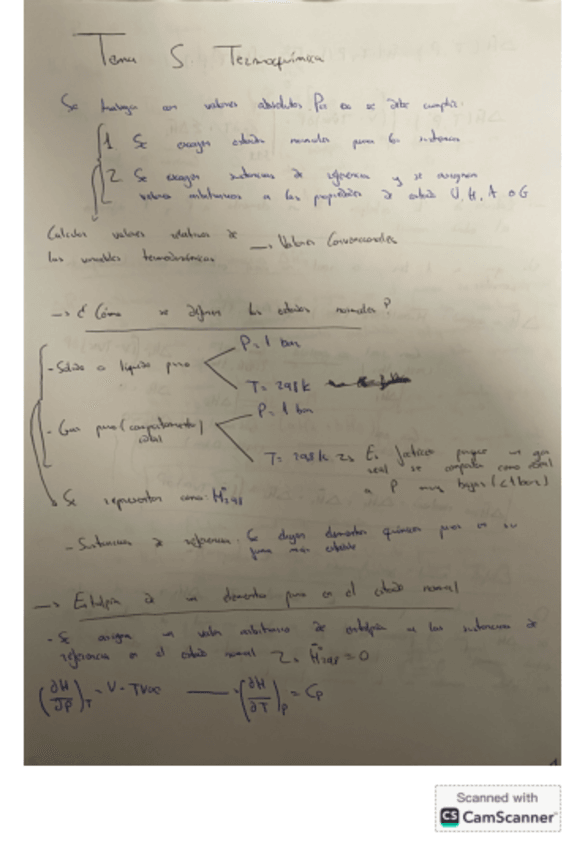 Tema 5 Termoquímica
Se trabaja con valores absolutos. Por eso se debe cumplir:
1 Se escogen estados normales para las sustancias
2 Se escogen sustancias de referencia y se asignan
valores arbitrarios a las propiedades de estado U, H, A o G
Calcular valores relativos de
las variables termodinámicas
→ Valores Convencionales
→ ¿Cómo se definen los estados normales?
- Sólido o líquido puro
P = 1 bar
T = 298 K
- Gas puro (comportamiento)
ideal
P = 1 bar
T = 298 K Es ficticio porque un gas
real se comporta como ideal
a P muy bajas (<1 bar)
Se representan como: H̄°298
- Sustancias de referencia: Se eligen elementos químicos puros en su
forma más estable
→ Entalpía de un elemento puro en el estado normal
- Se asigna un valor arbitrario de entalpía a las sustancias de
referencia en el estado normal H̄°298 = 0
(∂H/∂P)T = V - TVα — (∂H/∂T)P = CP
Scanned with
CS CamScanner